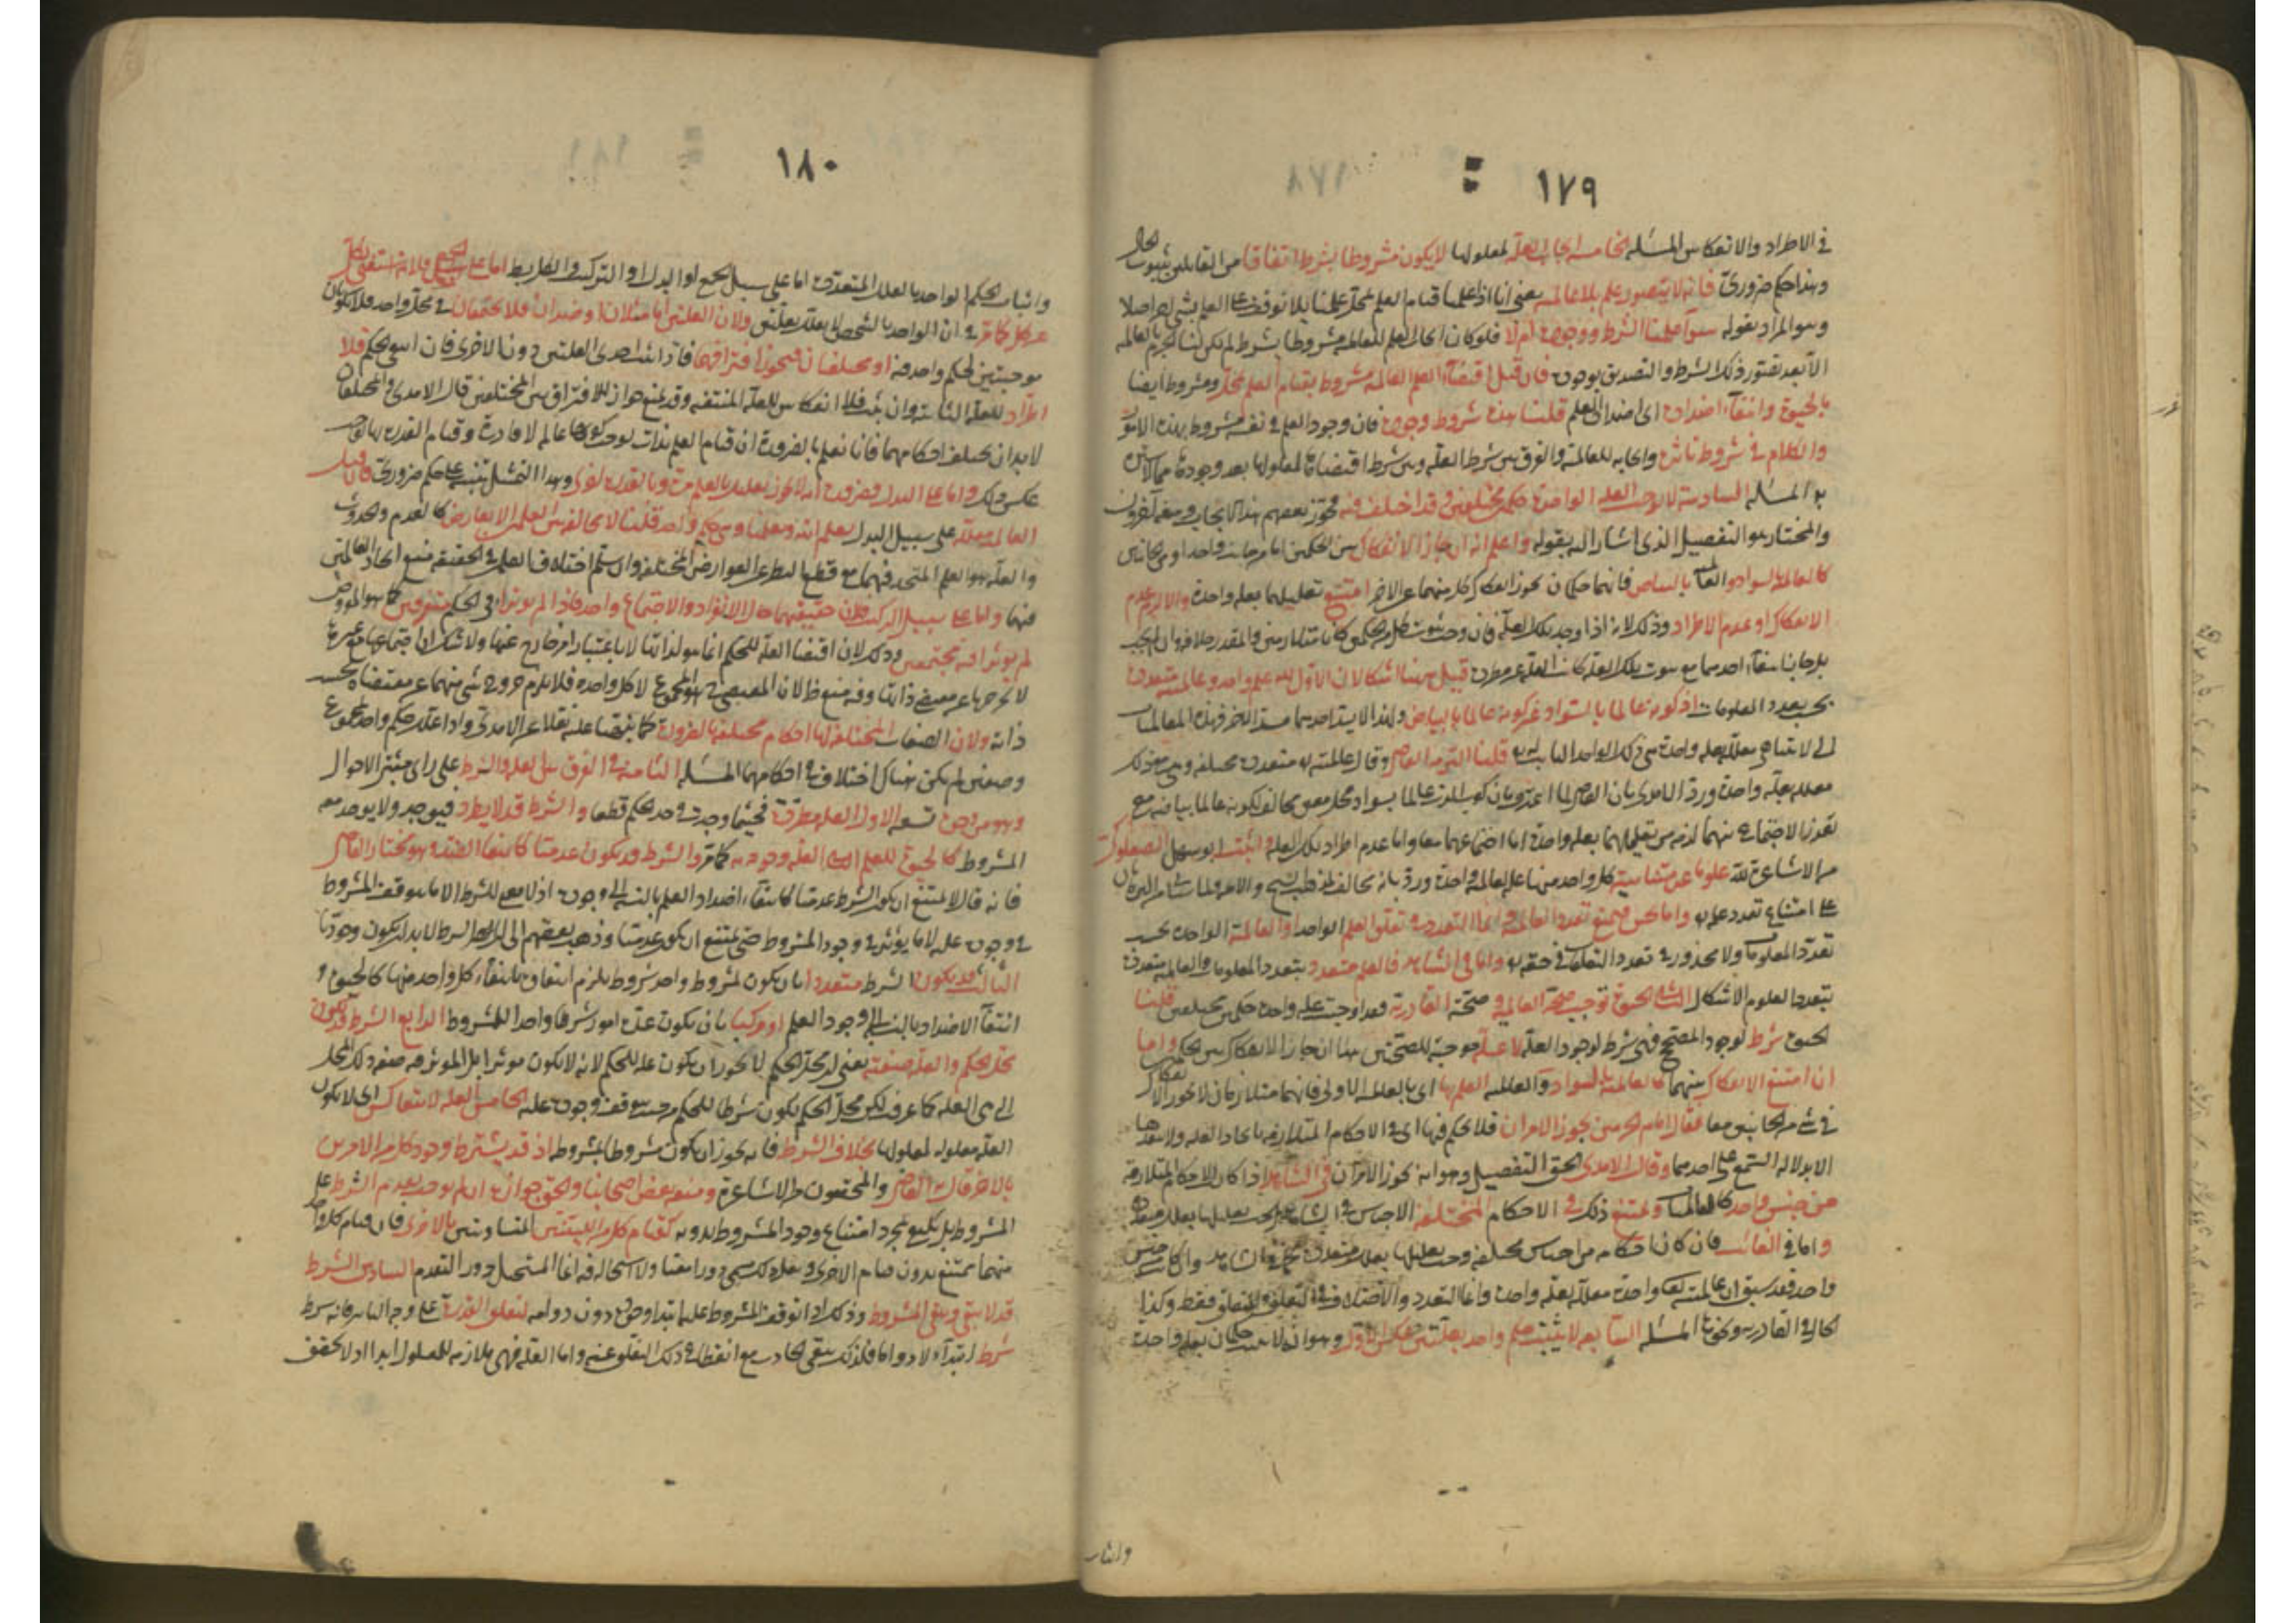 ١٧٩
في الاطراد والانعكاس المسئلة الخامسة ايجاب العلة لمعلولها لا يكون مشروطا بشرط اتفاقا من القايلين بثبوت الحال
وهذا حكم ضروري فانه لا يتصور علم بلا عالمية يعني انا اذا علمنا قيام العلم بمحل علمنا بلا توقف على العلم بشئ اخر اصلا
وهو المراد بقوله سواء علمنا الشرط ووجوده ام لا فلو كان ايجاب العلم للعالمية مشروطا بشرط لم يكن لنا الجزم بالعالمية
الا بعد تصور ذلك الشرط والتصديق بوجوده فان قيل اقتضاء العلم العالمية مشروط بقيام العلم بمحل ومشروط ايضا
بالحيوة وانتفاء اضداده اي اضداد العلم قلنا هذه شروط وجوده فان وجود العلم في نفسه مشروط بهذه الامور
والكلام في شروط تاثيره وايجابه للعالمية والفرق بين شرط العلة وبين شرط اقتضائها لمعلولها بعد وجودها مما لا سترة
به المسئلة السادسة لا توجب العلة الواحدة حكمين مختلفين وقد اختلف فيه فجوز بعضهم هذا الايجاب ومنعه آخرون
والمختار هو التفصيل الذي اشار اليه بقوله واعلم انه ان جاز الانفكاك بين الحكمين اما من جانب واحد او من جانبين
كالعالمية بالسواد والعالمية بالبياض فانهما حكمان يجوز انفكاك كل منهما عن الاخر امتنع تعليلهما بعلة واحدة والا لزم عدم
الانفكاك او عدم الاطراد وذلك لانه اذا وجد تلك العلة فان وجب ثبوت كل من الحكمين كانا متلازمين والمقدر خلافه وان لم يجب
بل جاز انتفاء احدهما مع ثبوت تلك العلة كانت العلة غير مطردة قيل ههنا اشكالان الاول لله علم واحد وعالميته متعددة
بحسب تعدد المعلومات اذ كونه عالما بالسواد غير كونه عالما بالبياض ولهذا لا يسد احدهما مسد الاخر فهذه العالميات
التي لا تتناهى معللة بعلة واحدة هي ذلك الواحد الثابت له قلنا التزمه القاضي وقال عالميته له متعددة مختلفة وهي مع ذلك
معللة بعلة واحدة ورد الامدي بان القاضي لما اعترف بان كون الرب عالما بسواد محل معين مخالف لكونه عالما ببياضه مع
تعذر الاجتماع بينهما لزمه من تعليلهما بعلة واحدة اما اجتماعهما معا واما عدم اطراد تلك العلة واثبت ابو سهل الصعلوكي
من الاشاعرة لله علوما غير متناهية كل واحد منها علة لعالمية واحدة ورد بانه مخالف لمذهب الشيخ والائمة ولما سيأتي من البرهان
على امتناع تعدد علمه واما نحن فنمنع تعدد العالمية وانما التعدد في تعلق العلم الواحد او العالمية الواحدة بحسب
تعدد المعلومات ولا محذور في تعدد التعلقات في حقه واما في الشاهد فالعلم متعدد بتعدد المعلومات والعالمية متعددة
بتعدد العلوم الاشكال الثاني الحيوة توجب صحة العالمية وصحة القادرية فقد اوجبت علة واحدة حكمين مختلفين قلنا
الحيوة شرط لوجود المصحح فهي شرط لوجود العلة لا علة موجبة للصحتين هذا ان جاز الانفكاك بين الحكمين واما
ان امتنع الانفكاك بينهما كالعالمية بالسواد والعالمية بالعلم بها اي بالعالمية الاولى فانهما متلازمان لا يجوز الانفكاك
في شئ من الجانبين معا فقال امام الحرمين يجوز الامران فلا نحكم فيها اي في الاحكام المتلازمة باتحاد العلة ولا بتعددها
الا بدلالة السمع على احدهما وقال الامدي الحق التفصيل وهو انه يجوز الامران في الشاهد اذا كان الاحكام المتلازمة
من جنس واحد كالعالميات ويمتنع ذلك في الاحكام المختلفة الاجناس في الشاهد بل يجب تعليلها بعلل متعددة
واما في الغائب فان كان احكامه من اجناس مختلفة وجب تعليلها بعلل متعددة كما في الشاهد وان كان من جنس
واحد فقد سبق ان عالميته تعالى واحدة معللة بعلة واحدة وانما التعدد والاختلاف في التعلق والمتعلق فقط وكذا
الحال في القادرية ونحوها المسئلة السابعة لا يثبت حكم واحد بعلتين عكس الاول وهو انه لا يثبت حكمان بعلة واحدة
واثبات
١٨٠
واثبات الحكم الواحد بالعلل المتعددة اما على سبيل الجمع او البدل او التركيب والكل باطل اما على الجمع فلانه استغنى بكل
عن كل كما مر في ان الواحد بالشخص لا يعلل بعلتين ولان العلتين اما مثلان او ضدان فلا يجتمعان في محل واحد فلا يكونان
موجبتين لحكم واحد فيه او مختلفان فيجوز افتراقهما فاذا انتفت احدى العلتين دون الاخرى فان انتفى الحكم فلا
اطراد للعلة الثابتة وان ثبت فلا انعكاس للعلة المنتفية وقد يمنع جواز الافتراق بين المختلفين قال الامدي والمختلفان
لابد ان يختلف احكامهما فانا نعلم بالضرورة ان قيام العلم بذات يوجب كونها عالمة لا قادرة وقيام القدرة بها يوجب
عكس ذلك واما على البدل فضرورة انه لا يجوز تعليله بالعلم مرة وبالقدرة اخرى وهذا التمثيل تنبيه على حكم ضروري فان قيل
العالمية معللة على سبيل البدل بعلم الله وعلمنا وهي حكم واحد قلنا لا مخالفة بين العلمين الا بعارض كالقدم والحدوث
والعلة هو العلم المتحد فيهما مع قطع النظر عن العوارض المختلفة وان سلم اختلاف العلم في الحقيقة منع اتحاد العالمية
فيهما واما على سبيل التركيب فلان حقيقتهما حال الانفراد والاجتماع واحدة فاذا لم يوثرا في الحكم متفرقين كما هو المفروض
لم يوثرا فيه مجتمعين وذلك لان اقتضاء العلة للحكم انما هو لذاتها لا باعتبار امر خارج عنها ولا شك ان اجتماعها مع غيرها
لا يخرجها عن مقتضى ذاتها وفيه منع ظ لان المقتضي هو المجموع لا كل واحدة فلا يلزم خروج شئ منهما عن مقتضاه بحسب
ذاته ولان الصفات المختلفة لها احكام مختلفة بالضرورة كما نبهنا عليه نقلا عن الامدي واذا علل حكم واحد بمجموع
وصفين لم يكن هناك اختلاف في احكامهما المسئلة الثامنة في الفرق بين العلة والشرط على راي مثبتي الاحوال
وهو من وجوه تسعة الاول العلة مطردة فحيثما وجدت وجد الحكم قطعا والشرط قد لا يطرد فيوجد ولا يوجد معه
المشروط كالحيوة للعلم الثاني العلة وجودية كما مر والشرط قد يكون عدميا كانتفاء الضد وهو مختار القاضي
فانه قال لا يمتنع ان يكون الشرط عدميا كانتفاء اضداد العلم بالنسبة الى وجوده اذ لا معنى للشرط الا ما يتوقف المشروط
في وجوده عليه لا ما يوثر في وجود المشروط حتى يمتنع ان يكون عدميا وذهب بعضهم الى ان الشرط لابد ان يكون وجوديا
الثالث قد يكون الشرط متعددا بان يكون لمشروط واحد شروط يلزم انتفاؤه بانتفاء كل واحد منها كالحيوة و
انتفاء الاضداد بالنسبة الى وجود العلم او مركبا بان يكون عدة امور شرطا واحدا للمشروط الرابع الشرط قد يكون
محل الحكم والعلة صفته يعني ان محل الحكم لا يجوز ان يكون علة للحكم لانه لا يكون موثرا بل الموثر فيه صفة ذلك المحل
التي هي العلة كما عرف لكن محل الحكم يكون شرطا للحكم من حيث يتوقف وجوده عليه الخامس العلة لا تتعاكس اي لا يكون
العلة معلولة لمعلولها بخلاف الشرط فانه يجوز ان يكون مشروطا لمشروطه اذ قد يشترط وجود كل من الامرين
بالاخر قال به القاضي والمحققون من الاشاعرة ومنعه بعض اصحابنا والحق جوازه ان لم نوجب تقدم الشرط على
المشروط بل نكتفي بمجرد امتناع وجود المشروط بدونه كقيام كل من اللبنتين المتساندتين بالاخرى فان قيام كل واحد
منهما يمتنع بدون قيام الاخرى ومثل ذلك يسمى دور معية ولا استحالة فيه انما المستحيل دور التقدم السادس الشرط
قد لا يبقى ويبقى المشروط وذلك اذا توقف المشروط عليه ابتداء وجوده دون دوامه كتعلق القدرة على وجه التاثير فانه شرط
شرط ابتداء لا دواما فلذلك يبقى الحادث مع انقطاع ذلك التعلق عنه واما العلة فهي ملازمة للمعلول ابدا اذ لا يتحقق